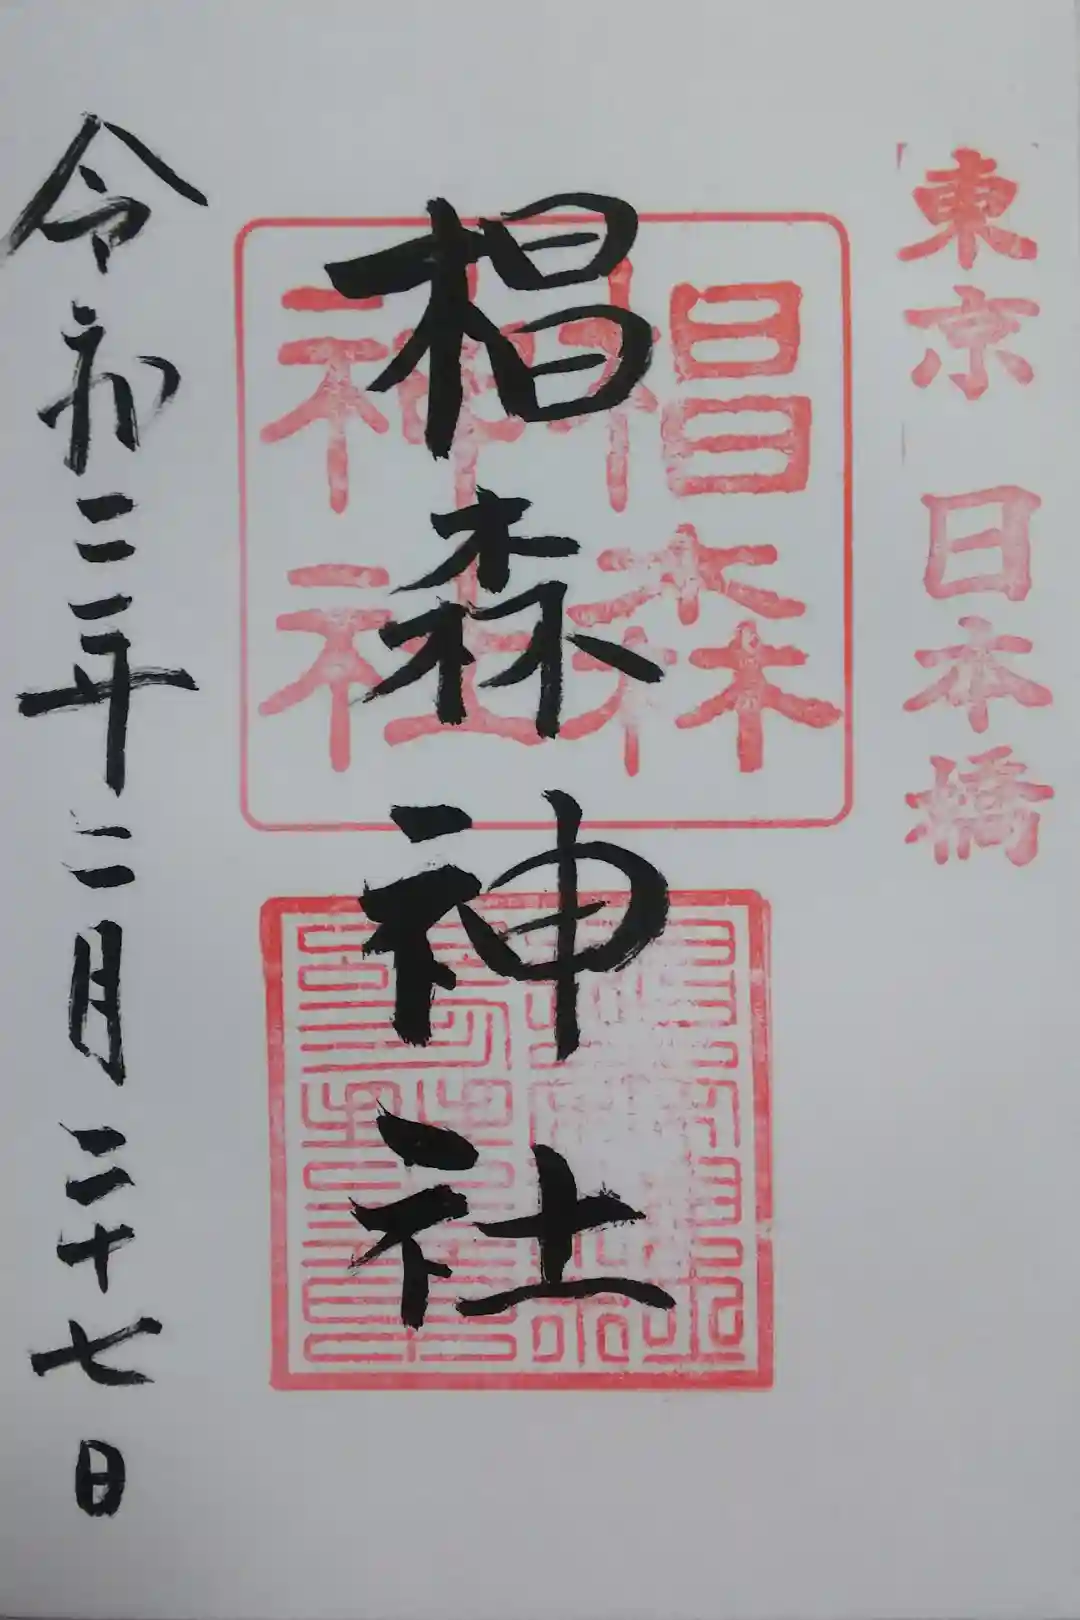 東京 日本橋
椙森神社
椙森
神社
令和二年二月二十七日